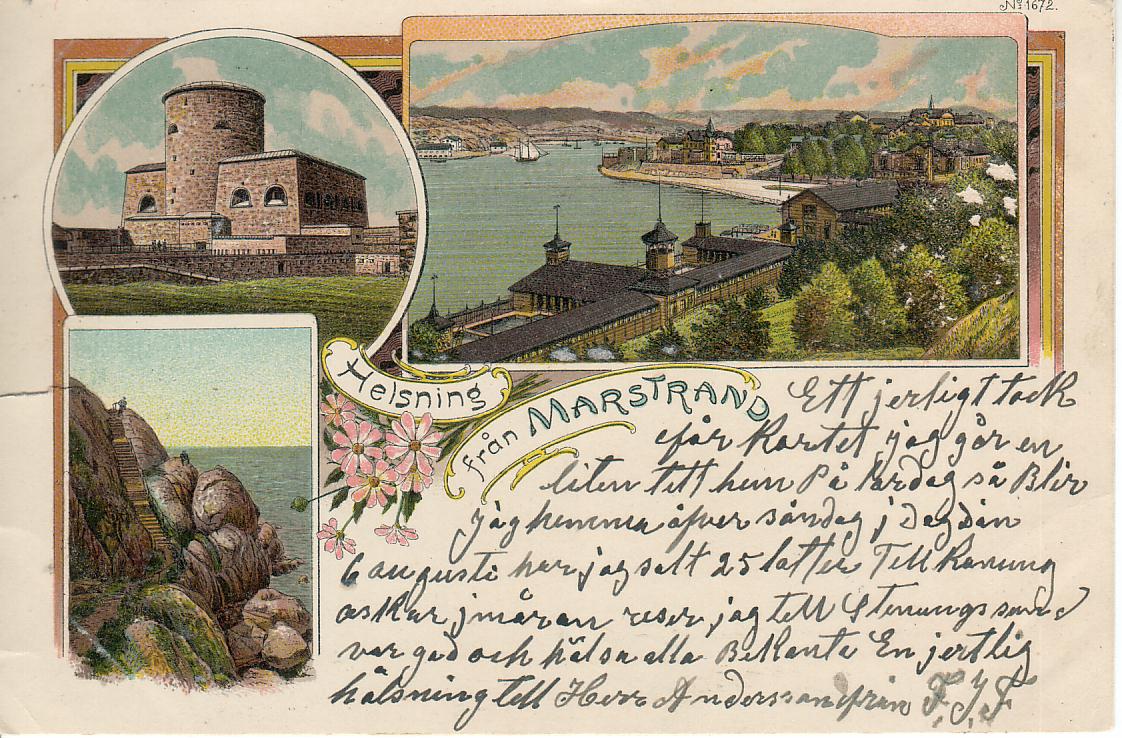 No 1672.
Helsning
från MARSTRAND
Ett jerligt tack
får Kortet jag gör en
liten tett hem På lardag så Blir
jag hemma åfver såndag j Dag dän
6 augusti har jag salt 25 latter Till Kanung
askar j måran reser jag tell Stenungssund
var gad och hälsa alla Bekanta En jertlig
hälsning tell Herr Anderssan från F.J.F